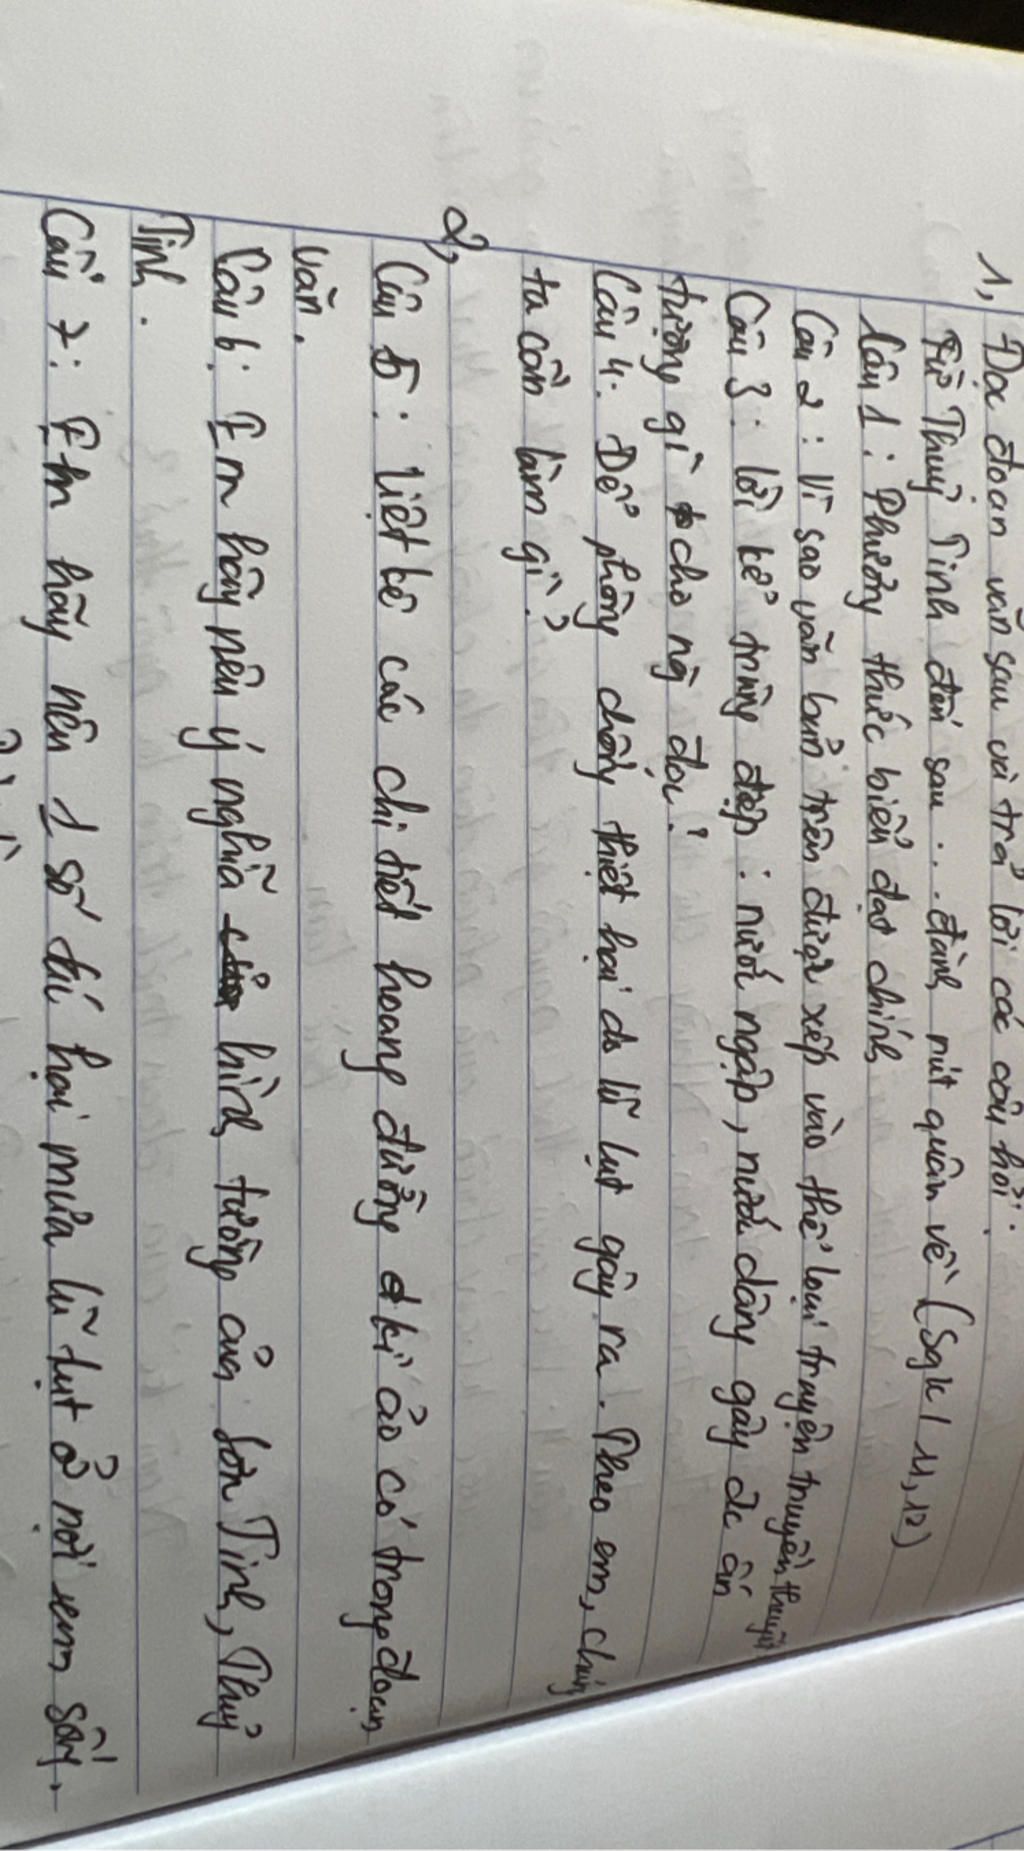 1, Đọc đoạn văn sau và trả lời các câu hỏi:
Từ Thuỷ Tinh đến sau ... đành rút quân về (Sgk / 11, 12)
Câu 1: Phương thức biểu đạt chính
Câu 2: Vì sao văn bản trên được xếp vào thể loại truyện truyền thuyết
Câu 3: lời kể trùng điệp: nước ngập, nước dâng gây đc ấn
tượng gì cho ng đọc?
Câu 4: Để phòng chống thiệt hại do lũ lụt gây ra. Theo em, chúng
ta cần làm gì?
2,
Câu 5: Liệt kê các chi tiết hoang đường kì ảo có trong đoạn
văn.
Câu 6: Em hãy nêu ý nghĩa hình tượng của Sơn Tinh, Thuỷ
Tinh.
Câu 7: Em hãy nêu 1 số tác hại mưa lũ lụt ở nơi em sống.